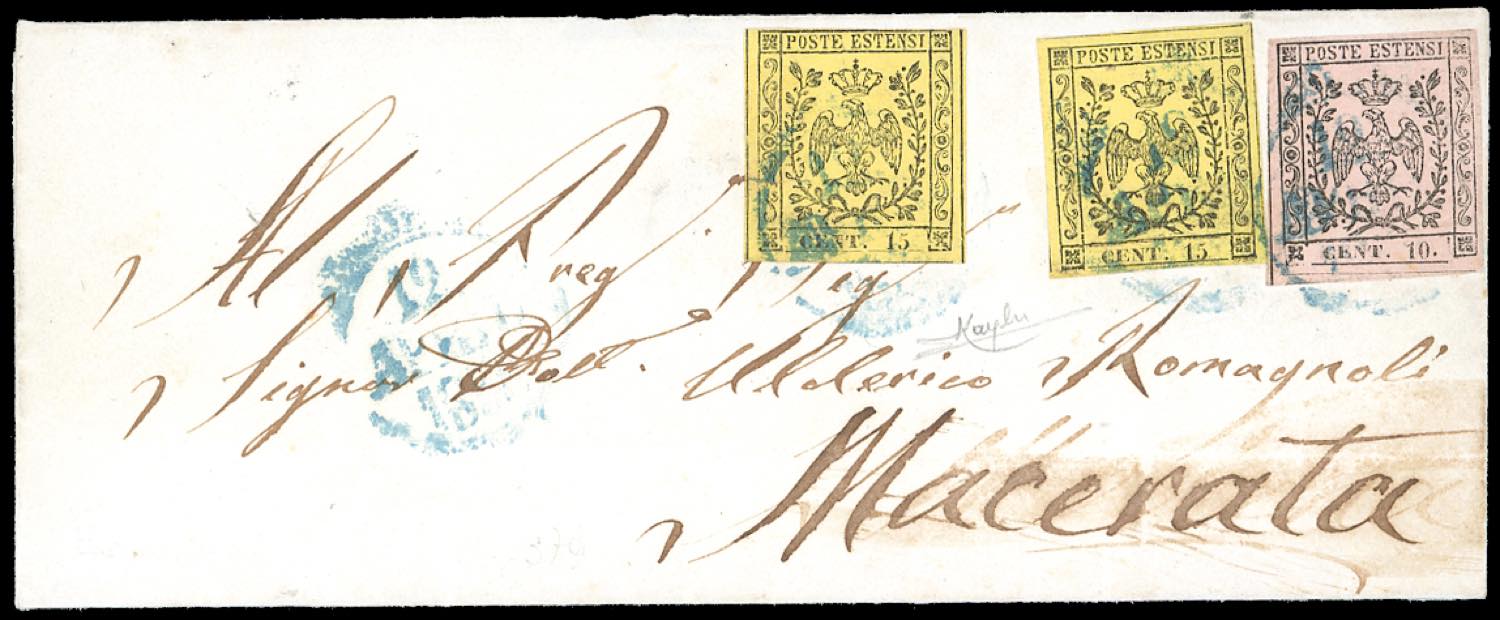 POSTE ESTENSI
CENT. 15
POSTE ESTENSI
CENT. 15
POSTE ESTENSI
CENT. 10.
Al Preg Sig
Signor Dott. Ulderico Romagnoli
Macerata